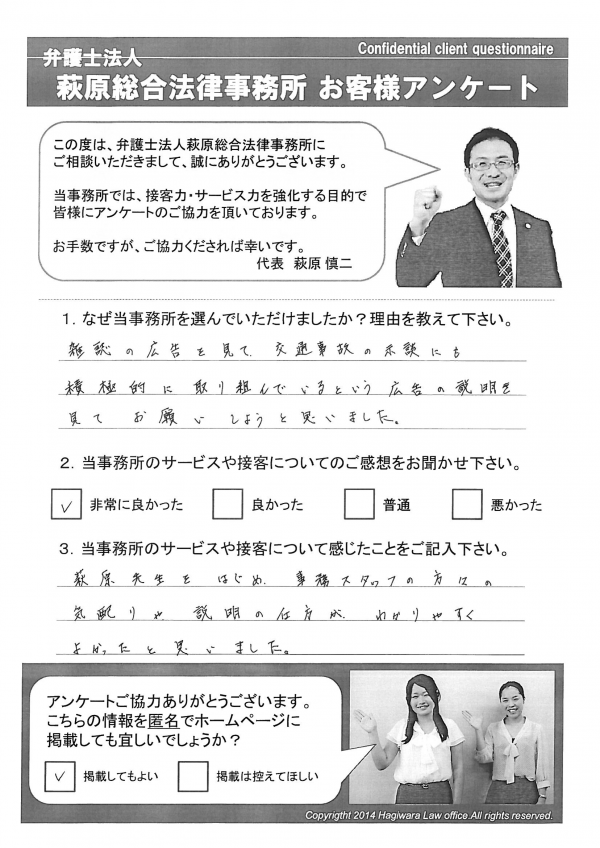 Confidential client questionnaire
弁護士法人
萩原総合法律事務所 お客様アンケート
この度は、弁護士法人萩原総合法律事務所に
ご相談いただきまして、誠にありがとうございます。
当事務所では、接客力・サービス力を強化する目的で
皆様にアンケートのご協力を頂いております。
お手数ですが、ご協力くだされば幸いです。
代表 萩原 慎二
1. なぜ当事務所を選んでいただけましたか？理由を教えて下さい。
雑誌の広告を見て、交通事故の示談にも
積極的に取り組んでいるという広告の説明を
見てお願いしようと思いました。
2. 当事務所のサービスや接客についてのご感想をお聞かせ下さい。
✓ 非常に良かった 良かった 普通 悪かった
3. 当事務所のサービスや接客について感じたことをご記入下さい。
萩原先生をはじめ、事務スタッフの方々の
気配りや、説明の仕方が、わかりやすく
よかったと思いました。
アンケートご協力ありがとうございます。
こちらの情報を匿名でホームページに
掲載しても宜しいでしょうか？
✓ 掲載してもよい 掲載は控えてほしい
Copyrigtht 2014 Hagiwara Law office.All rights reserved.